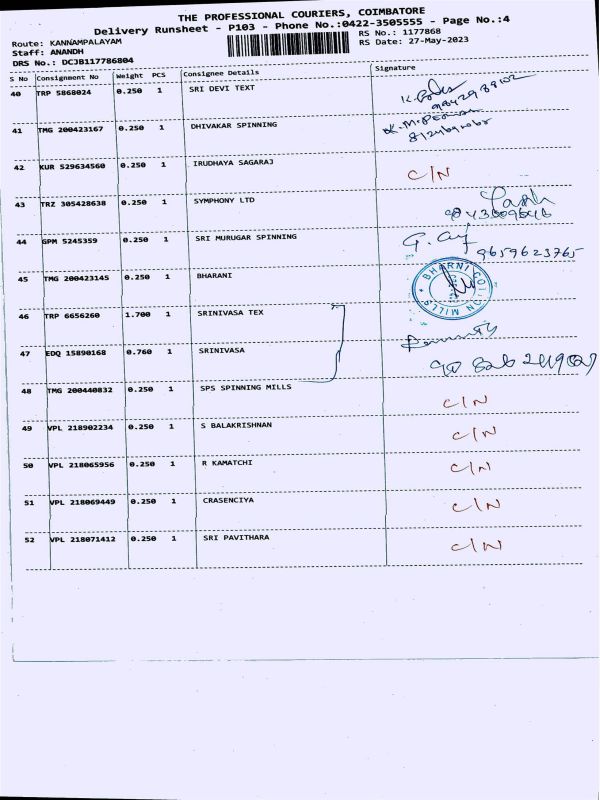 THE PROFESSIONAL COURIERS, COIMBATORE
Delivery Runsheet - P103 - Phone No.:0422-3505555 - Page No.:4
Route: KANNAMPALAYAM RS No.: 1177868
Staff: ANANDH RS Date: 27-May-2023
DRS No.: DCJB117786804
S No Consignment No Weight PCS Consignee Details Signature
40 TRP 5868024 0.250 1 SRI DEVI TEXT
41 TMG 200423167 0.250 1 DHIVAKAR SPINNING
42 KUR 529634560 0.250 1 IRUDHAYA SAGARAJ C/N
43 TRZ 305428638 0.250 1 SYMPHONY LTD
44 GPM 5245359 0.250 1 SRI MURUGAR SPINNING
9659623765
45 TMG 200423145 0.250 1 BHARANI BHARNI COTTON MILLS
46 TRP 6656260 1.700 1 SRINIVASA TEX
47 EDQ 15890168 0.760 1 SRINIVASA
48 TMG 200440832 0.250 1 SPS SPINNING MILLS C/N
49 VPL 218902234 0.250 1 S BALAKRISHNAN C/N
50 VPL 218065956 0.250 1 R KAMATCHI C/N
51 VPL 218069449 0.250 1 CRASENCIYA C/N
52 VPL 218071412 0.250 1 SRI PAVITHARA C/N